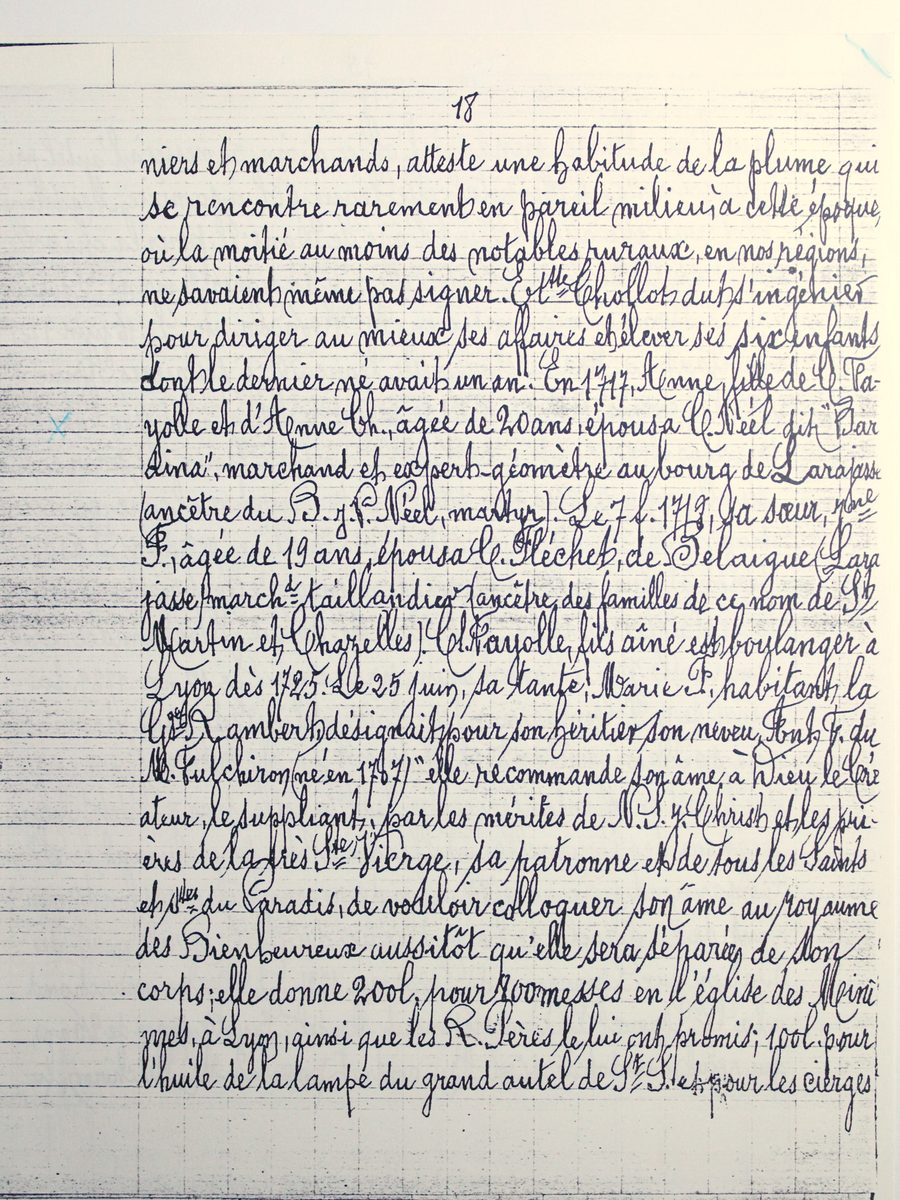 18
niers et marchands, atteste une habitude de la plume qui
se rencontre rarement en pareil milieu, à cette époque,
où la moitié au moins des notables ruraux, en nos régions,
ne savaient même pas signer. Et Chollet dut s'ingénier
pour diriger au mieux ses affaires et élever ses six enfants
dont le dernier né avait un an. En 1717, Anne, fille de C. Fa-
yolle et d'Anne Ch., âgée de 20 ans, épousa C. Néel dit "Bar
", marchand et expert-géomètre au bourg de Larajasse
(ancêtre du B. J. P. Néel, martyr). Le 7 f. 1719, sa sœur,
F., âgée de 19 ans, épousa C. Fléchet, de Belaigue (Lara
jasse) march.d taillandier (ancêtre des familles de ce nom de St
Martin et Chazelles). Cl. Fayolle, fils aîné est boulanger à
Lyon dès 1725. Le 25 juin, sa tante, Marie F., habitant la
Rambert, désignait pour son héritier son neveu, Ant. F. du
M. Fulchiron (né en 1707) "elle recommande son âme à Dieu le Cré
ateur, le suppliant, par les mérites de N. S. J. Christ et les pri-
ères de la très Ste Vierge, sa patronne et de tous les Saints
et Stes du Paradis, de vouloir colloquer son âme au royaume
des Bienheureux aussitôt qu'elle sera séparée de son
corps; elle donne 200l. pour messes en l'église des Mini
mes, à Lyon, ainsi que les R. Pères le lui ont promis; 100l. pour
l'huile de la lampe du grand autel de St S. et pour les cierges